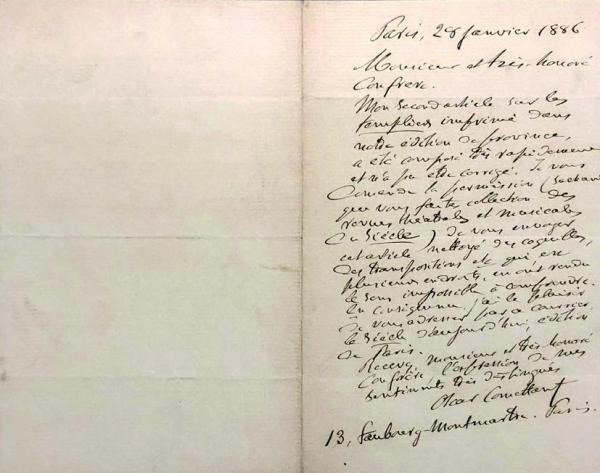 Paris, 28 Janvier 1886
Monsieur et très-honoré
Confrère.
Mon second article sur les
Templiers imprimé dans
notre édition de province,
a été composé très rapidement
et n'a pu être corrigé. Je vous
demande la permission (sachant
que vous faite collection des
revues théatrales et musicales
du Siècle) de vous envoyer
cet article nettoyé des coquilles,
des transpositions etc qui, en
plusieurs endroits, en ont rendu
le sens impossible à comprendre.
En conséquence j'ai le plaisir
de vous adresser par ce courrier
le Siècle d'aujourd'hui, édition
de Paris.
Recevez, Monsieur et très-honoré
Confrère, l'expression de mes
sentiments très distingués
Oscar Comettant
13, Faubourg-Montmartre. Paris.